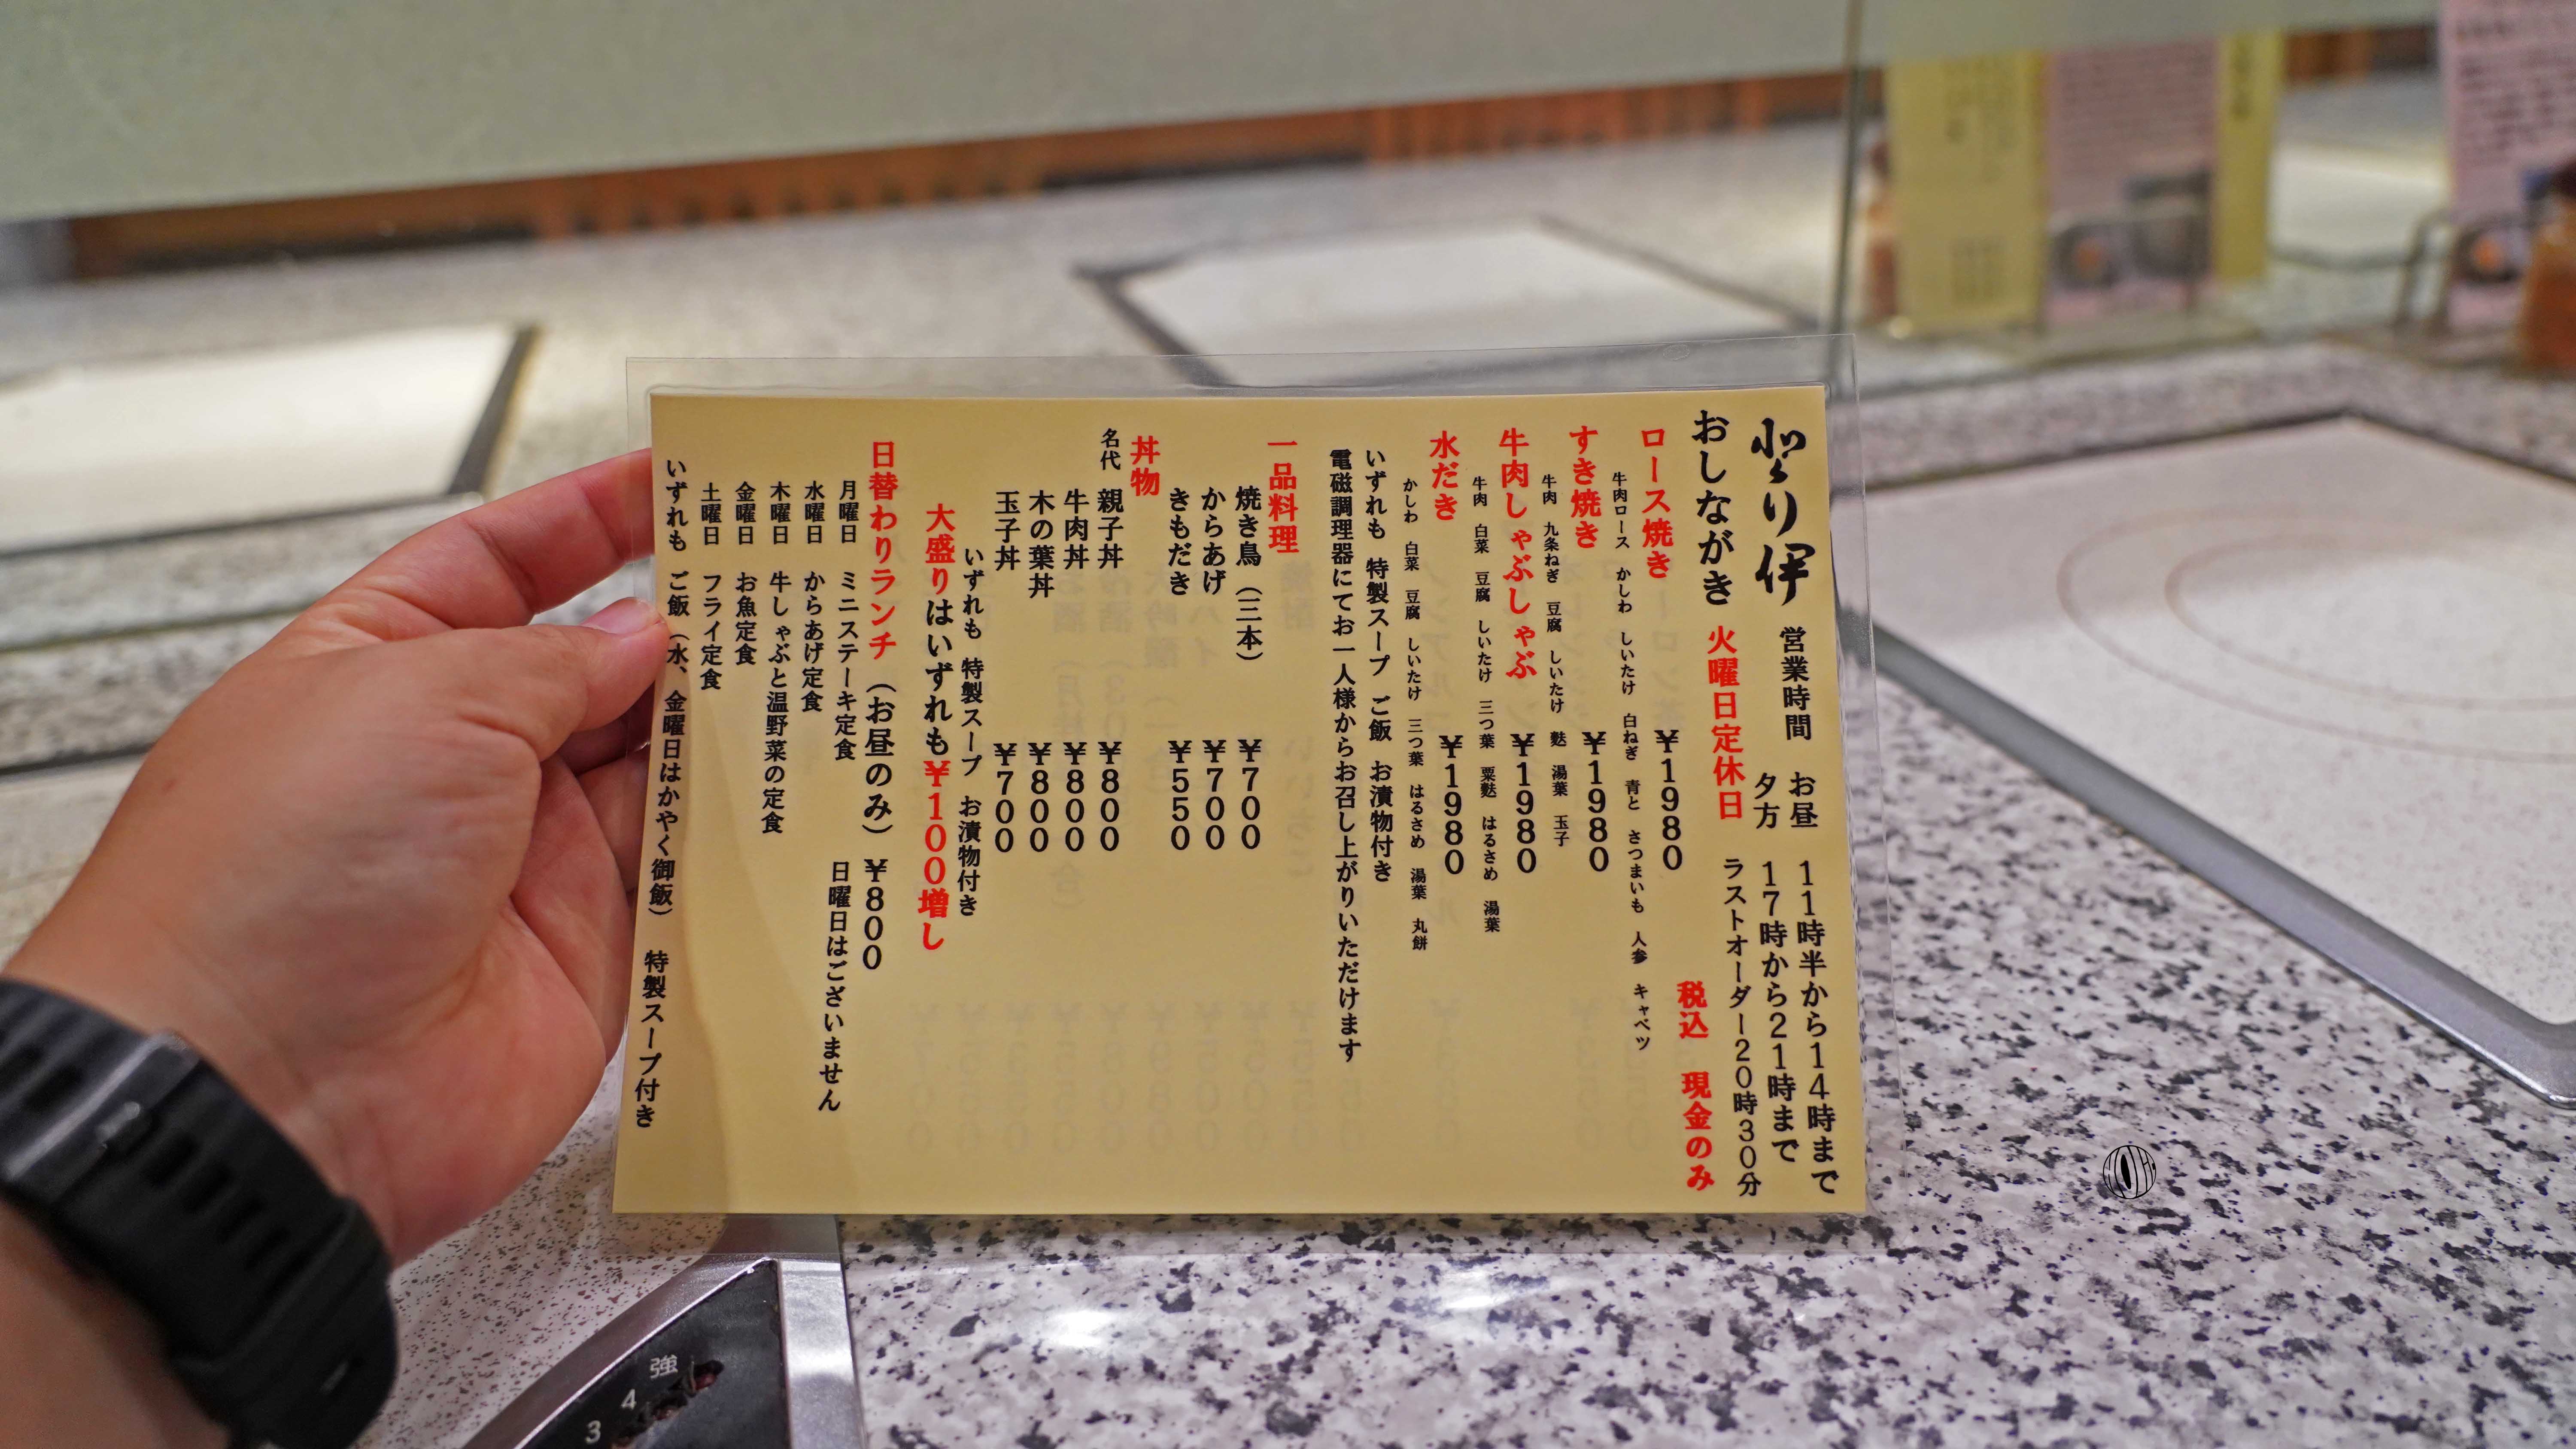 とり伊
営業時間 お昼 11時半から14時まで
夕方 17時から21時まで
ラストオーダー20時30分
おしながき 火曜日定休日
税込 現金のみ
ロース焼き ¥1980
牛肉ロース かしわ しいたけ 白ねぎ 青と さつまいも 人参 キャベツ
すき焼き ¥1980
牛肉 九条ねぎ 豆腐 しいたけ 麩 湯葉 玉子
牛肉しゃぶしゃぶ ¥1980
牛肉 白菜 豆腐 しいたけ 三つ葉 粟麩 はるさめ 湯葉
水だき ¥1980
かしわ 白菜 豆腐 しいたけ 三つ葉 はるさめ 湯葉 丸餅
いずれも 特製スープ ご飯 お漬物付き
電磁調理器にてお一人様からお召し上がりいただけます
一品料理
焼き鳥(三本) ¥700
からあげ ¥700
きもだき ¥550
丼物
名代 親子丼 ¥800
牛肉丼 ¥800
木の葉丼 ¥800
玉子丼 ¥700
いずれも 特製スープ お漬物付き
大盛りはいずれも¥100増し
日替わりランチ(お昼のみ) ¥800
日曜日はございません
月曜日 ミニステーキ定食
水曜日 からあげ定食
木曜日 牛しゃぶと温野菜の定食
金曜日 お魚定食
土曜日 フライ定食
いずれも ご飯(水、金曜日はかやく御飯) 特製スープ付き
強
4
3